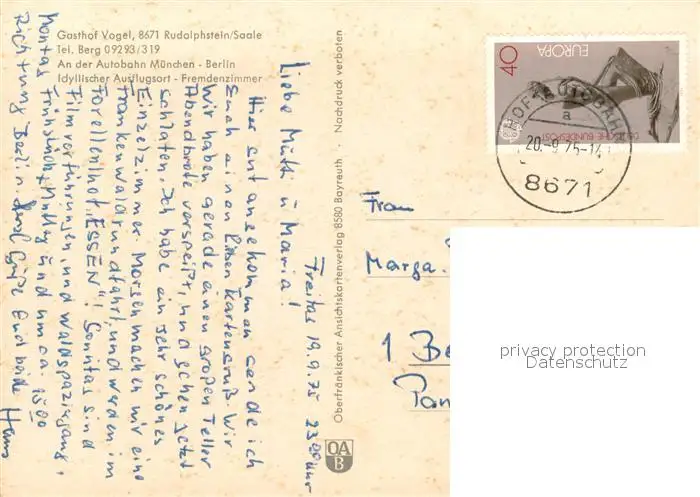 Gasthof Vogel, 8671 Rudolphstein/Saale
Tel. Berg 09293/319
An der Autobahn München - Berlin
Idyllischer Ausflugsort - Fremdenzimmer
Freitag 19.9.75 23 00 Uhr
Liebe Mutti u Maria!
Hier gut angekommen sende ich
Euch einen lieben Kartengruß. Wir
Wir haben gerade einen großen Teller
Abendbrote verspeißt, und gehen jetzt
schlafen. Ich habe ein sehr schönes
Einzelzimmer. Morgen machen wir eine
Frankenwaldrundfahrt, und werden im
Forellenhof "ESSEN"! Sonntag sind
Filmvorführungen, und Waldspaziergang,
Montag Frühstück, und um ca. 15 00
Richtung Berlin. Grüße Euch beide Hans
Oberfränkischer Ansichtskartenverlag 8580 Bayreuth · Nachdruck verboten
OA
B
40
EUROPA
DEUTSCHE BUNDESPOST
HOF-AUTOBAHN
a
20.-9.75-14
8671
Frau
Marga.
1 Be
Pan
privacy protection
Datenschutz